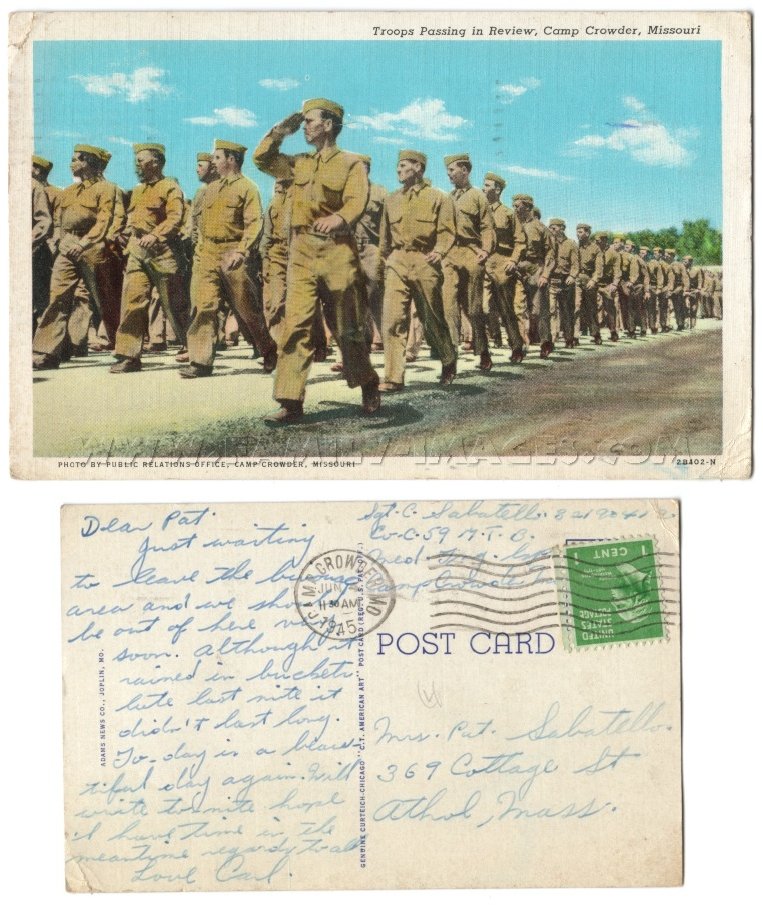 Troops Passing in Review, Camp Crowder, Missouri
PHOTO BY PUBLIC RELATIONS OFFICE, CAMP CROWDER, MISSOURI
2B402-N
Dear Pat.
Just waiting
to leave the bivouac
area and we should
be out of here very
soon. Although it
rained in buckets
late last nite it
didn't last long.
To-day is a beau-
tiful day again. Will
write to-nite hope
I have time in the
meantime regards to all
Love Carl.
ADAMS NEWS CO., JOPLIN, MO.
GENUINE CURTEICH-CHICAGO "C.T. AMERICAN ART" POST CARD (REG. U.S. PAT. OFF.)
Sgt. C. Sabatello
Co-C-59 M.T.B.
Med.
Camp Crowder
CAMP CROWDER, MO.
JUN
11 30 AM
1945
1 CENT 1
UNITED
STATES
POSTAGE
POST CARD
Mrs. Pat. Sabatello.
369 Cottage St
Athol, Mass.